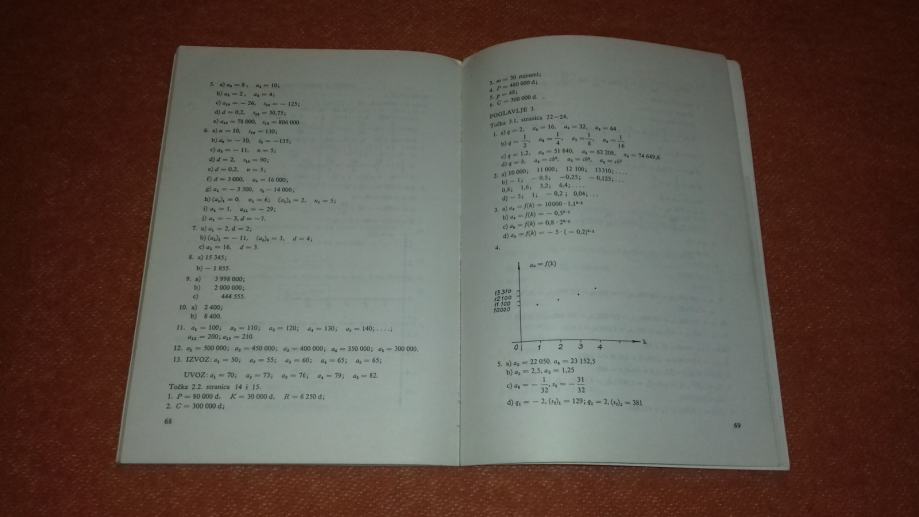 5. a) a₁ = 8, a₄ = 10;
b) a₁ = 2, a₄ = 4;
c) a₁₀ = − 26, s₁₀ = − 125;
d) d = 0,2, s₁₀ = 50,75;
6. a) n = 10, s₁₀ = 110;
b) a₁ = − 30, s₉ = −135;
c) a₁ = − 11, n = 5;
d) d = 2, s₁₀ = 90;
e) d = 0,2, n = 5;
f) d = 3 000, a₅ = 16 000;
g) a₁ = − 3 500, s₅ − 14 000;
h) (a₁)₁ = 0, n₁ = 6; (a₁)₂ = 2, n₂ = 5;
i) a₁ = 1, a₁₁ = − 29;
j) a₁ = − 3, d = −7.
7. a) a₁ = 2, d = 2;
b) (a₁)₁ = − 11, (a₁)₂ = 3, d = 4;
c) a₁ = 16, d = 3.
8. a) 15 345;
b) − 1 855.
9. a) 3 998 000;
b) 2 000 000;
c) 444 555.
10. a) 2 400;
b) 8 400.
11. a₁ = 100; a₂ = 110; a₃ = 120; a₄ = 130; a₅ = 140; . . . ;
a₁₁ = 200; a₁₂ = 210.
12. a₁ = 500 000; a₂ = 450 000; a₃ = 400 000; a₄ = 350 000; a₅ = 300 000.
13. IZVOZ: a₁ = 50; a₂ = 55; a₃ = 60; a₄ = 65; a₅ = 65;
UVOZ: a₁ = 70; a₂ = 73; a₃ = 76; a₄ = 79; a₅ = 82.
Točka 2.2. stranica 14 i 15.
1. P = 80 000 d, K = 30 000 d, R = 6 250 d;
2. C = 300 000 d;
68
3. m = 30
4. P = 480 000 d;
5. p = 48;
6. C = 300 000 d.
POGLAVLJE 3.
Točka 3.1. stranica 22−24.
1. a) q = 2, a₄ = 16, a₅ = 32, a₆ = 64
b) q = 1/2, a₄ = 1/4, a₅ = 1/8, a₆ = 1/16
c) q = 1,2, a₄ = 51 840, a₅ = 62 208, a₆ = 74 649,6
2. a) 10 000; 11 000; 12 100; 13310; . . .
b) − 1; − 0,5; −0,25; − 0,125; . . .
0,8; 1,6; 3,2; 6,4; . . .
d) − 5; 1; − 0,2; 0,04; . . .
3. a) aₖ = f(k) = 10000 · 1,1ᵏ⁻¹
b) aₖ = f(k) = − 0,5ᵏ⁻¹
c) aₖ = f(k) = 0,8 · 2ᵏ⁻¹
d) aₖ = f(k) = − 5 · (− 0,2)ᵏ⁻¹
4.
aₖ = f(k)
13.310
12 100
11 100
10000
0 1 2 3 4 k
5. a) a₂ = 22 050, a₃ = 23 152,5
b) a₂ = 2,5, a₃ = 1,25
c) a₆ = − 1/32, s₆ = − 31/32
d) q₁ = − 2, (s₇)₁ = 129; q₂ = 2, (s₇)₂ = 381
69